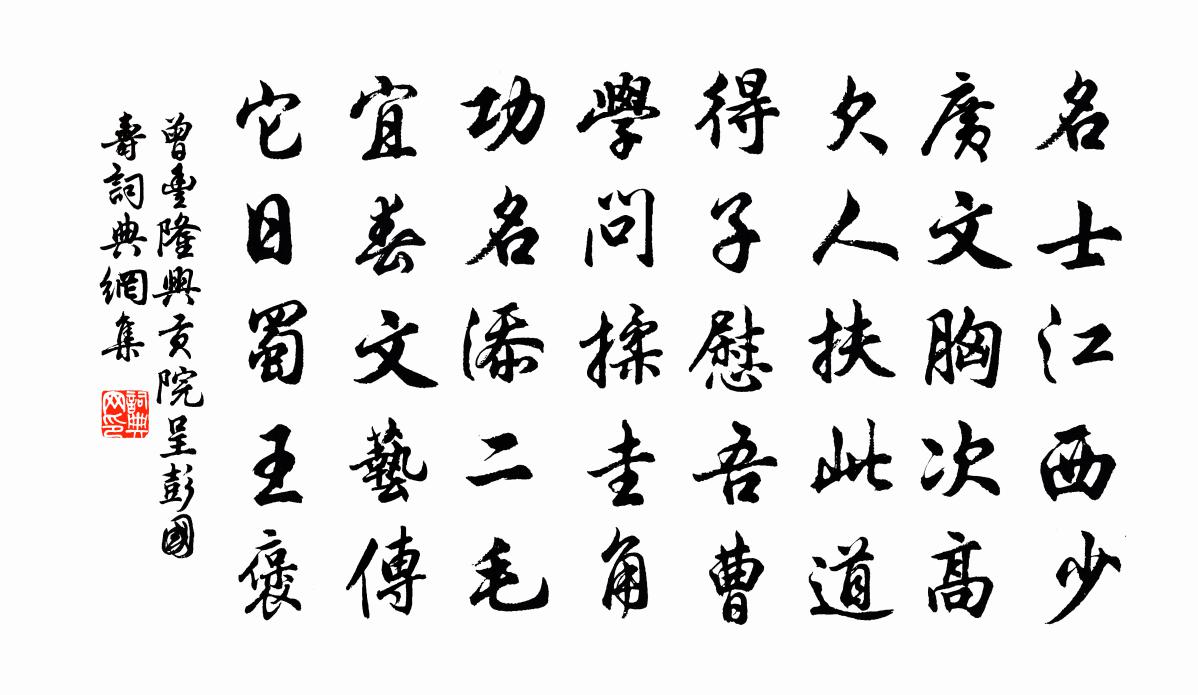 名士江西少
廣文胸次高
欠人扶此道
得子慰吾曹
學問揉圭角
功名添二毛
宜春文藝傳
它日蜀王褒
曾豐隆興貢院呈彭國
壽詞典網集
詞典
网印